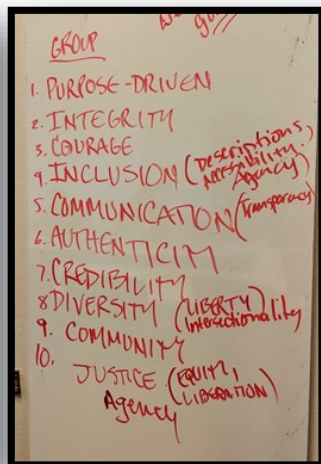 GROUP
1. PURPOSE-DRIVEN
2. INTEGRITY
3. COURAGE
4. INCLUSION (Descriptions, Accessibility, Agency)
5. COMMUNICATION (Transparency)
6. AUTHENTICITY
7. CREDIBILITY
8 DIVERSITY (LIBERTY) Intersectionality
9. COMMUNITY
10. JUSTICE (EQUITY, LIBERATION)
Agency